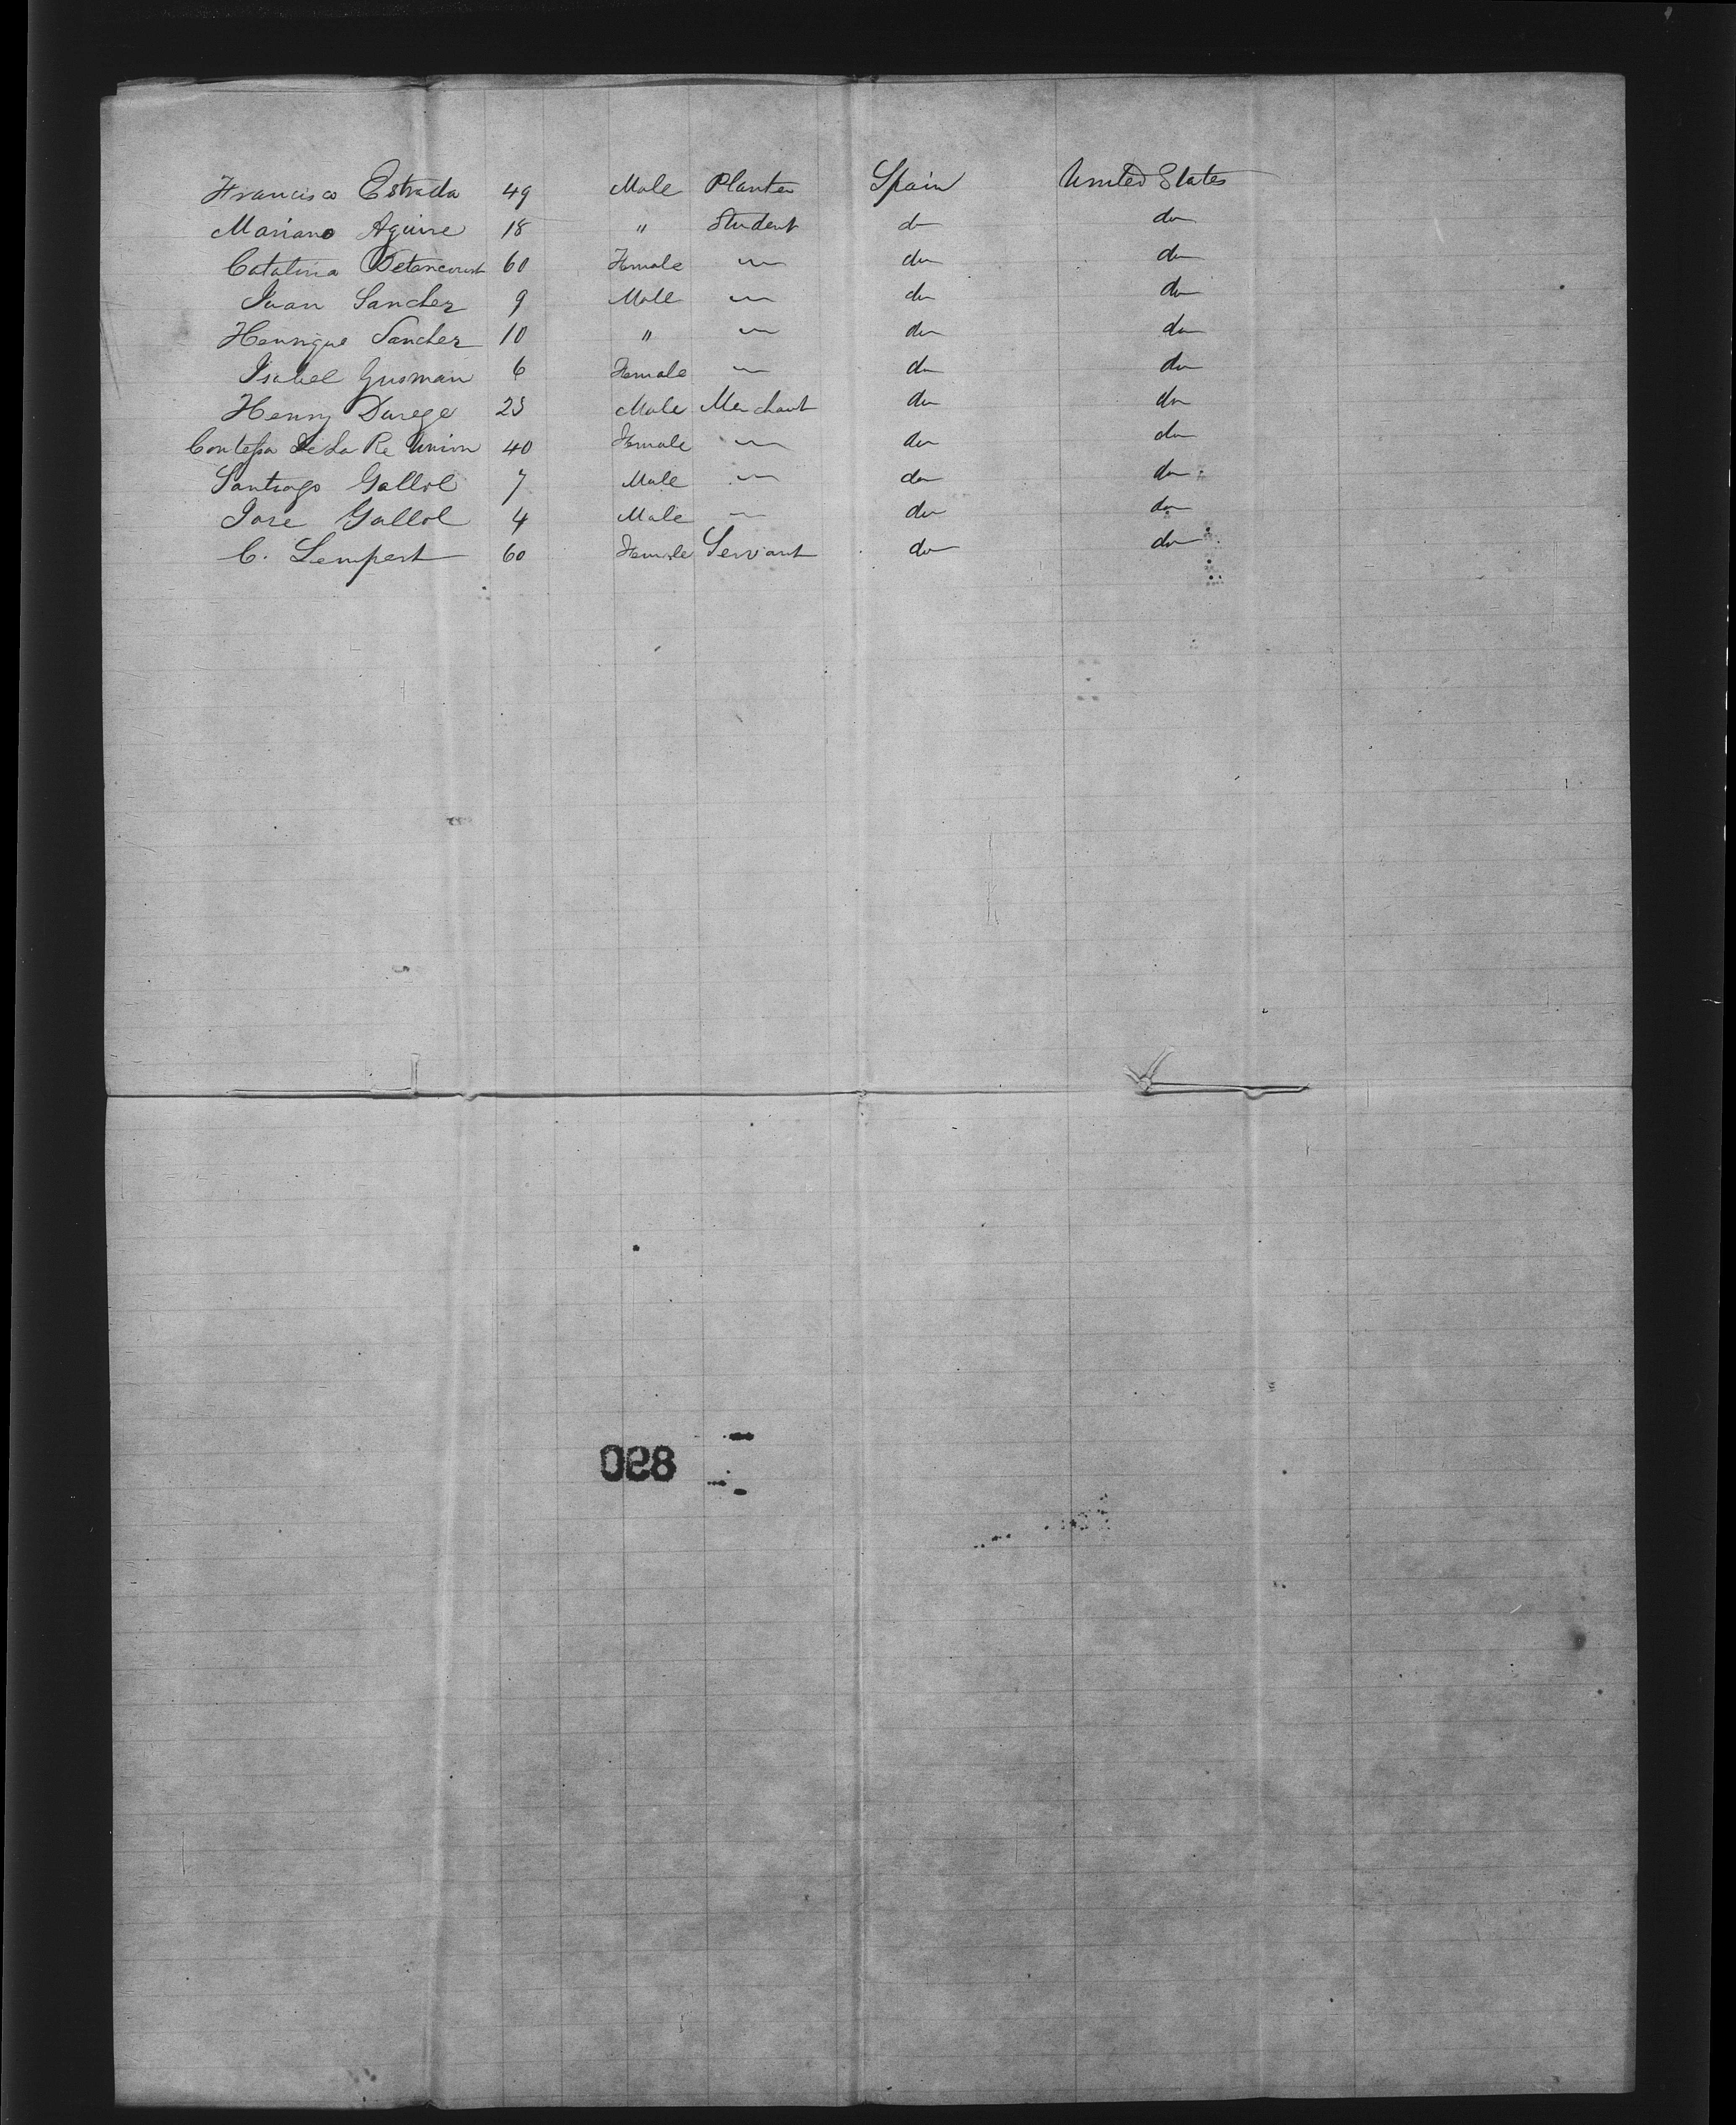 Francisco Estrada 49 Male Planter Spain United States
Mariano Aguire 18 " Student do do
Catalina Betancourt 60 Female — do do
Juan Sanchez 9 Male — do do
Henrique Sanchez 10 " — do do
Isabel Gusman 6 Female — do do
Henry Durege 25 Male Merchant do do
Contessa De La Re Union 40 Female — do do
Santiago Gallol 7 Male — do do
Jose Gallol 4 Male — do do
C. Lempert 60 Female Servant do do